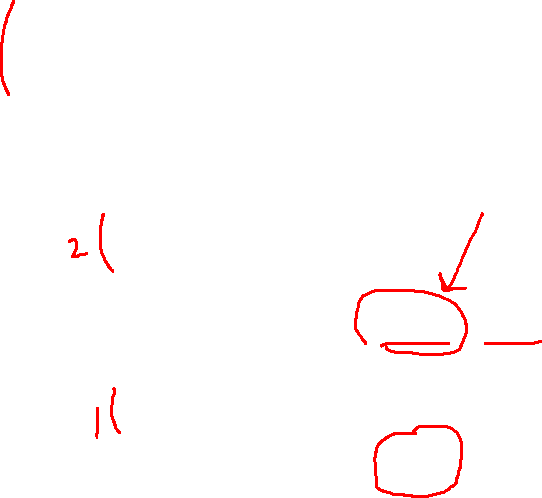 (
2(
1(